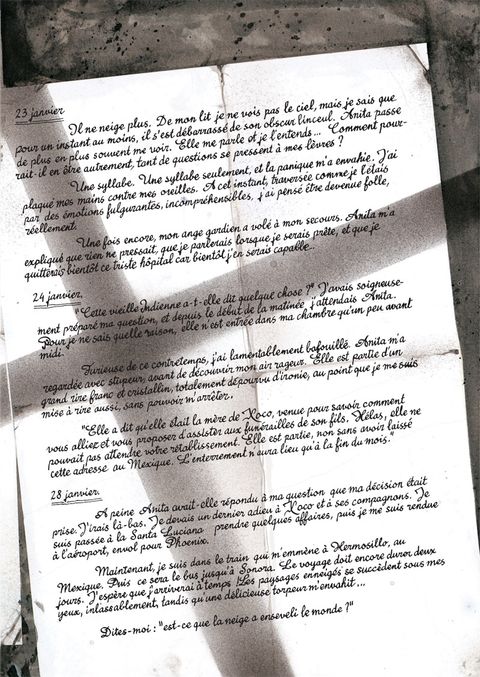 23 janvier.
Il ne neige plus. De mon lit je ne vois pas le ciel, mais je sais que
pour un instant au moins, il s'est débarrassé de son obscur linceul. Anita passe
de plus en plus souvent me voir. Elle me parle et je l'entends... Comment pour-
rait-il en être autrement, tant de questions se pressent à mes lèvres ?
Une syllabe. Une syllabe seulement, et la panique m'a envahie. J'ai
plaqué mes mains contre mes oreilles. A cet instant, traversée comme je l'étais
par des émotions fulgurantes, incompréhensibles, j'ai pensé être devenue folle,
réellement.
Une fois encore, mon ange gardien a volé à mon secours. Anita m'a
expliqué que rien ne pressait, que je parlerais lorsque je serais prête, et que je
quitterais bientôt ce triste hôpital car bientôt j'en serais capable...
24 janvier.
"Cette vieille Indienne a-t-elle dit quelque chose ?" J'avais soigneuse-
ment préparé ma question, et depuis le début de la matinée, j'attendais Anita.
Pour je ne sais quelle raison, elle n'est entrée dans ma chambre qu'un peu avant
midi.
Furieuse de ce contretemps, j'ai lamentablement bafouillé. Anita m'a
regardée avec stupeur, avant de découvrir mon air rageur. Elle est partie d'un
grand rire franc et cristallin, totalement dépourvu d'ironie, au point que je me suis
mise à rire aussi, sans pouvoir m'arrêter.
"Elle a dit qu'elle était la mère de Xoco, venue pour savoir comment
vous alliez et vous proposer d'assister aux funérailles de son fils. Hélas, elle ne
pouvait pas attendre votre rétablissement. Elle est partie, non sans avoir laissé
cette adresse au Mexique. L'enterrement n'aura lieu qu'à la fin du mois."
28 janvier.
A peine Anita avait-elle répondu à ma question que ma décision était
prise. J'irais là-bas. Je devais un dernier adieu à Xoco et à ses compagnons. Je
suis passée à la Santa Luciana prendre quelques affaires, puis je me suis rendue
à l'aéroport, envol pour Phoenix.
Maintenant, je suis dans le train qui m'emmène à Hermosillo, au
Mexique. Puis ce sera le bus jusqu'à Sonora. Le voyage doit encore durer deux
jours. J'espère que j'arriverai à temps. Les paysages enneigés se succèdent sous mes
yeux, inlassablement, tandis qu'une délicieuse torpeur m'envahit...
Dites-moi : "est-ce que la neige a enseveli le monde ?"